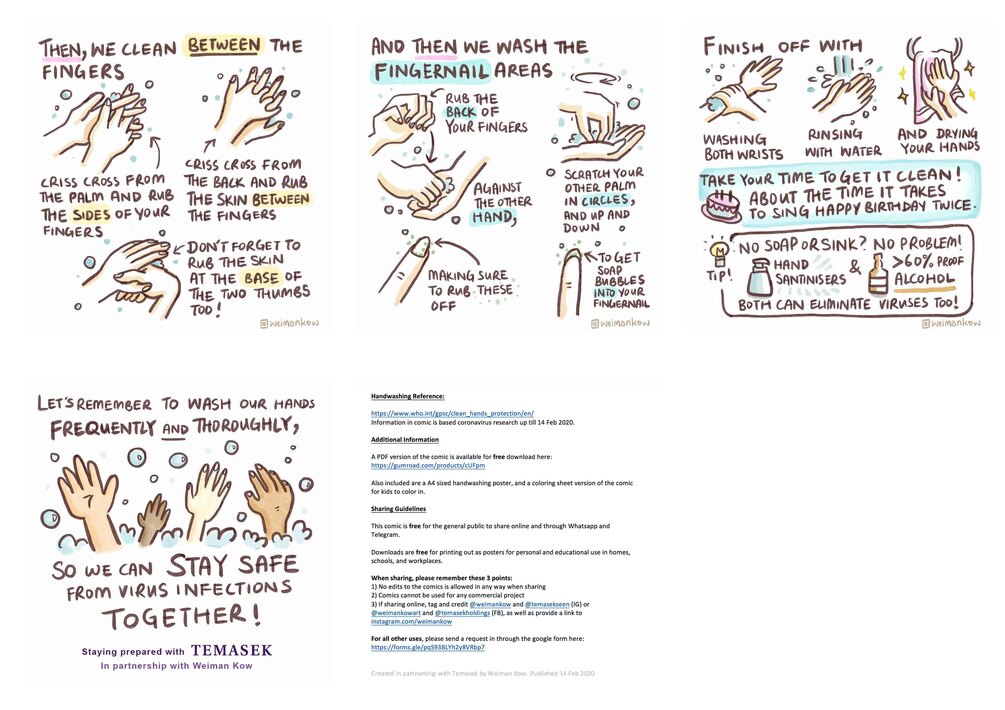 THEN, WE CLEAN BETWEEN THE
FINGERS
CRISS CROSS FROM
THE PALM AND RUB
THE SIDES OF YOUR
FINGERS
CRISS CROSS FROM
THE BACK AND RUB
THE SKIN BETWEEN
THE FINGERS
DON'T FORGET TO
RUB THE SKIN
AT THE BASE OF
THE TWO THUMBS
TOO!
@weimankow
AND THEN WE WASH THE
FINGERNAIL AREAS
RUB THE
BACK OF
YOUR FINGERS
AGAINST
THE OTHER
HAND,
MAKING SURE
TO RUB THESE
OFF
SCRATCH YOUR
OTHER PALM
IN CIRCLES,
AND UP AND
DOWN
TO GET
SOAP
BUBBLES
INTO YOUR
FINGERNAIL
@weimankow
FINISH OFF WITH
WASHING
BOTH WRISTS
RINSING
WITH WATER
AND DRYING
YOUR HANDS
TAKE YOUR TIME TO GET IT CLEAN!
ABOUT THE TIME IT TAKES
TO SING HAPPY BIRTHDAY TWICE.
TIP!
NO SOAP OR SINK? NO PROBLEM!
HAND
SANTINISERS
&
>60% PROOF
ALCOHOL
BOTH CAN ELIMINATE VIRUSES TOO!
@weimankow
LET'S REMEMBER TO WASH OUR HANDS
FREQUENTLY AND THOROUGHLY,
SO WE CAN STAY SAFE
FROM VIRUS INFECTIONS
TOGETHER!
Staying prepared with TEMASEK
In partnership with Weiman Kow
Handwashing Reference:
https://www.who.int/gpsc/clean_hands_protection/en/
Information in comic is based coronavirus research up till 14 Feb 2020.
Additional Information
A PDF version of the comic is available for free download here:
https://gumroad.com/products/cUFpm
Also included are a A4 sized handwashing poster, and a coloring sheet version of the comic
for kids to color in.
Sharing Guidelines
This comic is free for the general public to share online and through Whatsapp and
Telegram.
Downloads are free for printing out as posters for personal and educational use in homes,
schools, and workplaces.
When sharing, please remember these 3 points:
1) No edits to the comics is allowed in any way when sharing
2) Comics cannot be used for any commercial project
3) If sharing online, tag and credit @weimankow and @temasekseen (IG) or
@weimankowart and @temasekholdings (FB), as well as provide a link to
instagram.com/weimankow
For all other uses, please send a request in through the google form here:
https://forms.gle/pqS93BLYh2y8VRbp7
Created in partnership with Temasek by Weiman Kow. Published 14 Feb 2020